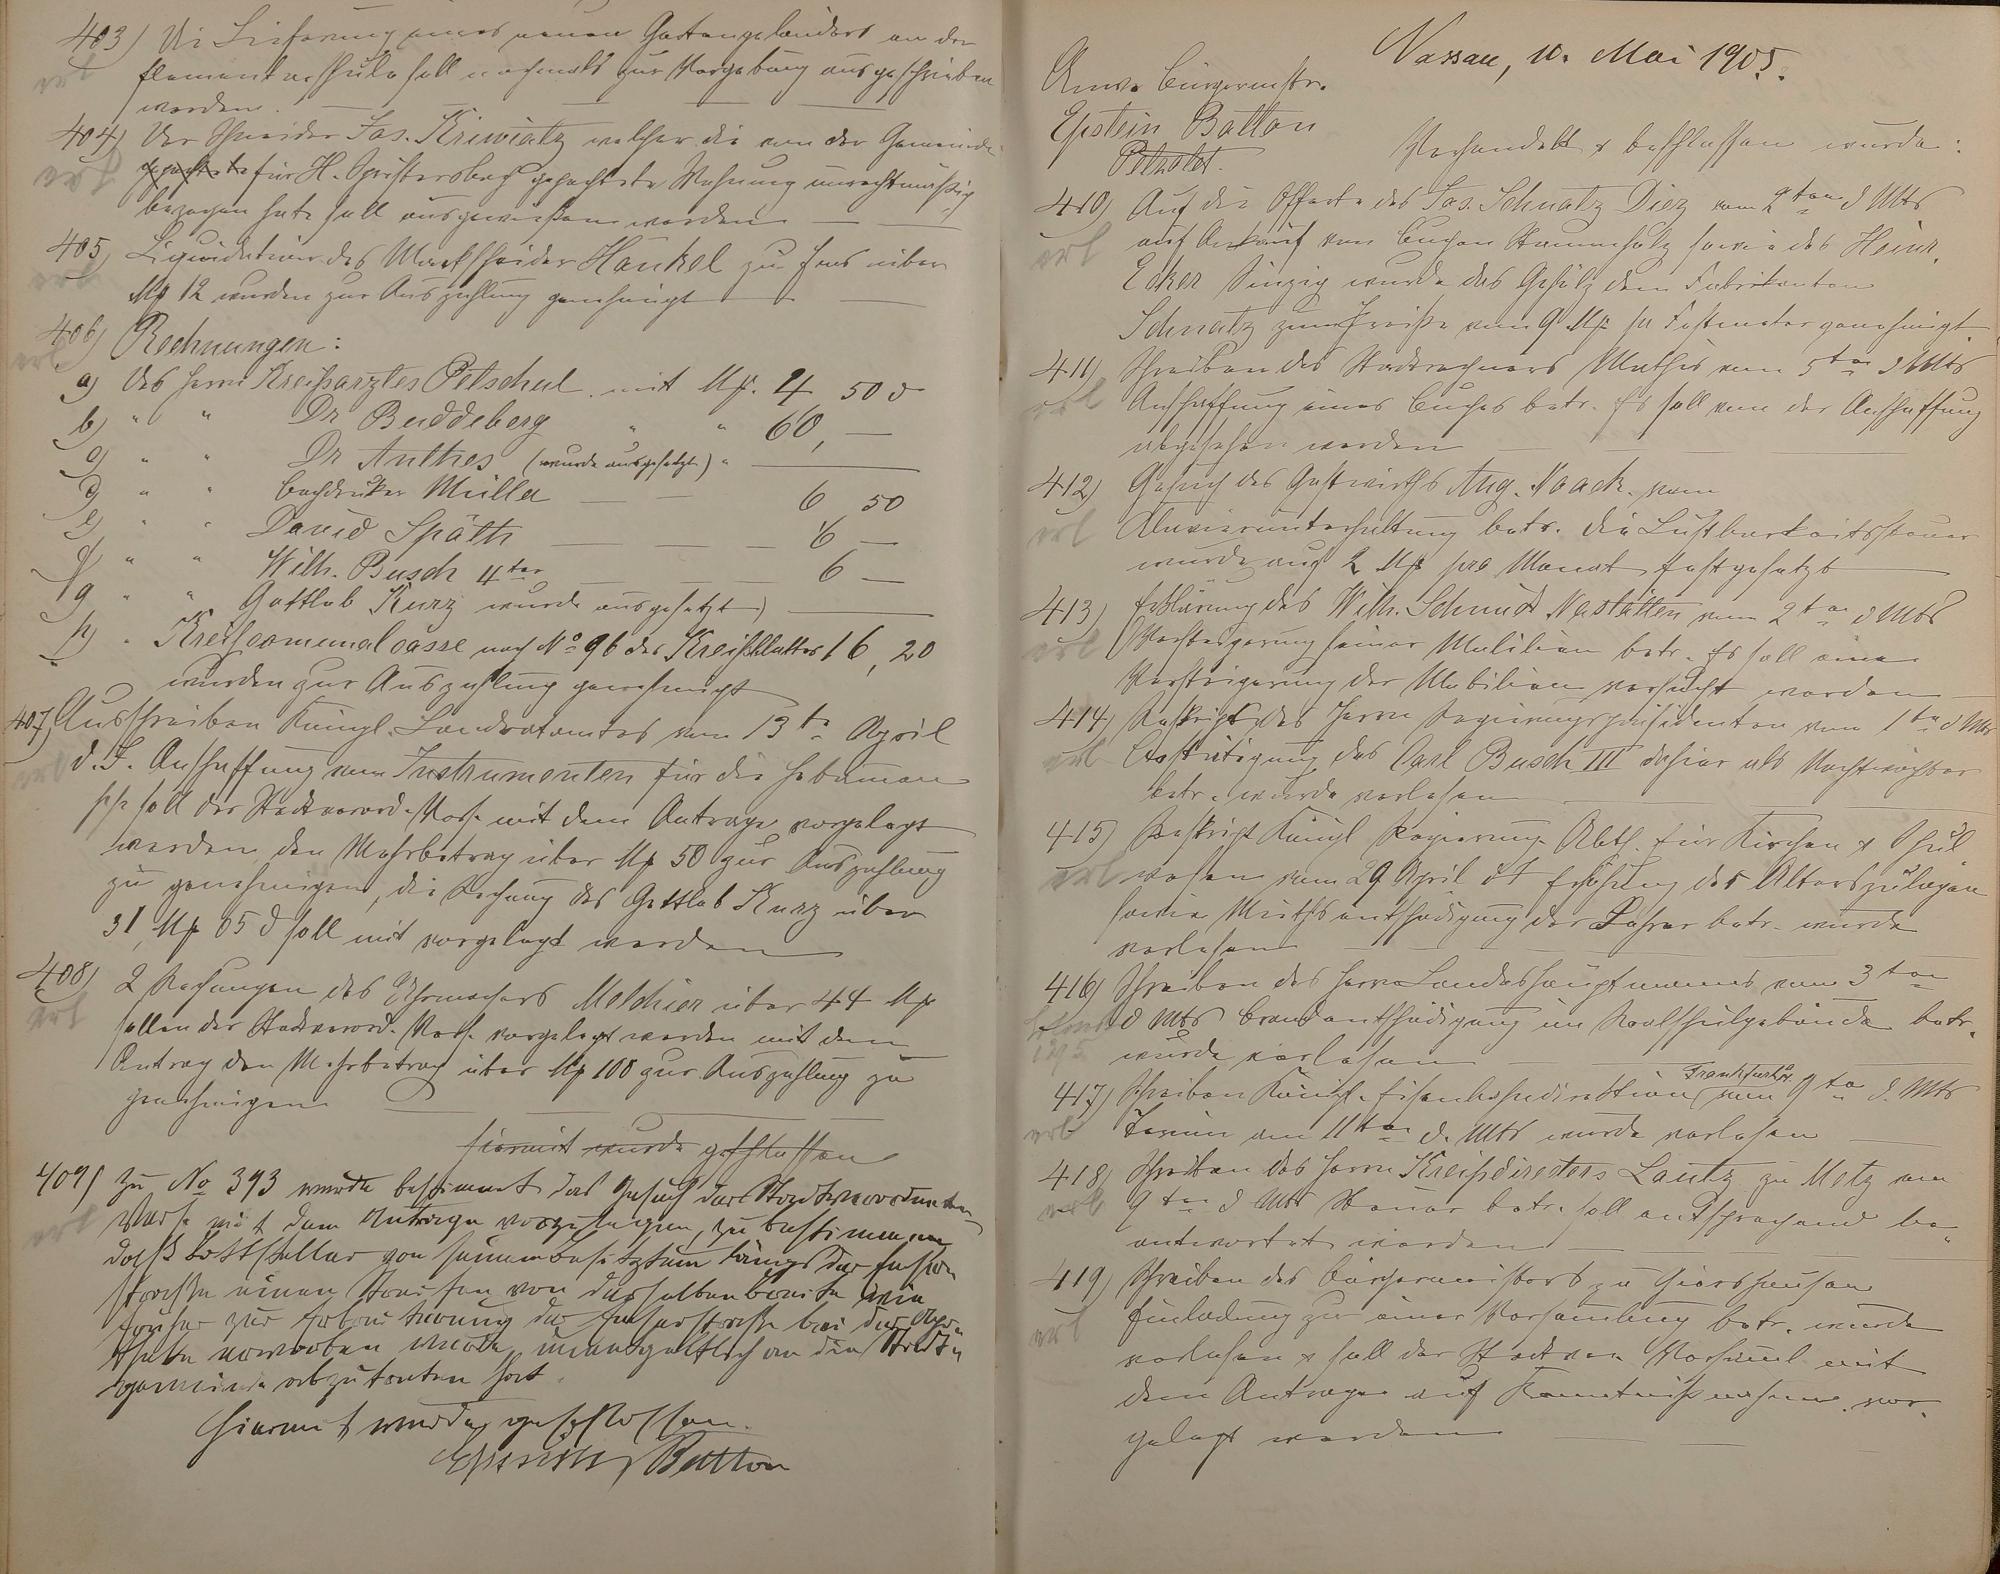 403) Die Lieferung eines neuen Gartengeländers an der
erl
Elementarschule soll nochmals zur Vergebung ausgeschrieben
werden.
404) Der Schneider Jos. Kriwiatz welcher die von der Gemeinde
erl
für H. gepachtete Wohnung unrechtmäßig
bezogen hat soll ausgewiesen werden
405) Liquidation des Markscheider Hankel zu Ems über
erl
Mk 12 wurden zur Auszahlung genehmigt
406) Rechnungen:
erl
a) des Herrn Kreisarztes Petschul mit Mk. 4 50 d
b) " " Dr Buddeberg " " 60, —
c) " " Dr Anthes (wurde ausgesetzt) "
d) " " Buchdruker Müller 6 50
e) " " David Späth 6 —
f) " " Wilh. Busch 4ter 6 —
g) " " Gottlob Kurz wurde ausgesetzt)
h) " Kreiscomunalcasse nach No 96 des Kreisblattes 16, 20
wurden zur Auszahlung genehmigt
407) Ausschreiben Königl. Landratamtes vom 13te April
erl
d. J. Anschaffung von Instrumenten für die Hebammen
soll der Stadtverord. Vers. mit dem Antrage vorgelegt
werden den Mehrbetrag über Mk 50 zur Auszahlung
zu genehmigen, die Rechnung des Gottlob Kurz über
31, Mk 05 d soll mit vorgelegt werden
408) 2 Rechnungen des Uhrmachers Melchier über 44 Mk
erl
sollen der Stadtverord. Vers. vorgelegt werden mit dem
Antrag den Mehrbetrag über Mk 100 zur Auszahlung zu
genehmigen
hiermit wurde geschlossen
409) Zu No 393 wurde bestimmt das Gesuch der Stadtverordneten
erl
Vers. mit dem Antrage vorzulegen, zu bestimmen
daß von seinem Besitztum längs der Emser
straße einen Streifen von derselben Breite wie
früher zur Verbreiterung der Emserstraße bei der
erworben wurde, unentgeltlich an die Stadt
gemeinde abzutreten hat.
Hiermit wurde geschlossen.
Epstein Batton
Nassau, 10. Mai 1905.
Anw. Bürgermstr.
Epstein Batton
Verhandelt & beschlossen wurde:
410) Auf die Offerte des Jos. Schnatz Diez vom 2ten d Mts
erl
auf Ankauf von Buchen Stammholz sowie des Heinr.
Ecker Sinzig wurde das Gehölz dem Fabrikanten
Schnatz zum Preise von 9 Mk pr Festmeter genehmigt
411) Schreiben des Stadtrechners Mathis vom 5ten d Mts
erl
Anschaffung eines Buches betr. Es soll von der Anschaffung
abgesehen werden
412) Gesuch des Gastwirths Aug. Noack. vom
erl
Clavierunterhaltung betr. die Lustbarkeitssteuer
wurde auf 2 Mk pro Monat festgesetzt
413) Erklärung des Wilh. Schmidt Nastätten vom 2ten d Mts
erl
Versteigerung seiner Mobilien betr. Es soll eine
Versteigerung der Mobilien versucht werden
414) Reskript des Herrn Regierungspräsidenten vom 1ten d Mts
erl
Bestätigung des Carl Busch III dahier als Nachtwächter
betr. wurde verlesen
415) Reskript Königl Regierung Abth. für Kirchen & Schul
erl
wesen vom 29 April Erhöhung der Alterszulagen
sowie Miethsentschädigung der Lehrer betr. wurde
verlesen
416) Schreiben des Herrn Landeshauptmanns vom 3ten
d Mts Brandentschädigung im Realschulgebäude betr.
wurde verlesen
417) Schreiben Königl. Eisenbahndirektion Frankfurt vom 9ten d. Mts
erl
Termin am 11ten d. Mts wurde verlesen
418) Schreiben des Herrn Kreisdirectors Lautz zu Metz vom
erl
9ten d Mts Steuer betr. soll entsprechend be-
antwortet werden
419) Schreiben des Bürgermeisters zu Giershausen
erl
Einladung zur einer Versamlung betr. wurde
verlesen & soll der Stadtver. Versaml. mit
dem Antrage auf Kenntnißnahme vor-
gelegt werden